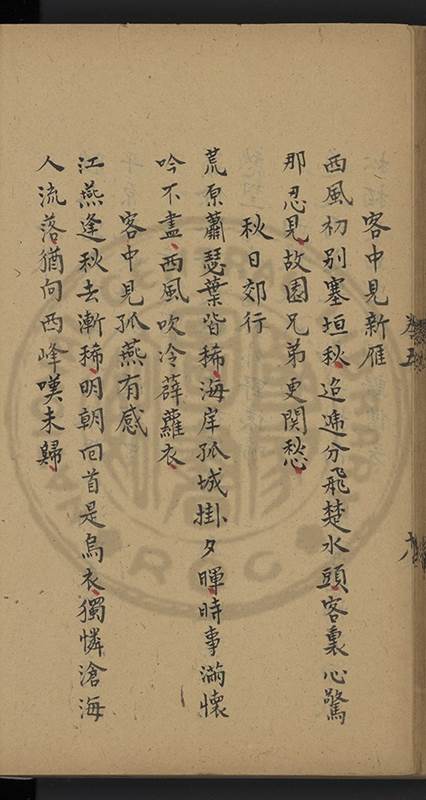 客中見新雁
西風初別塞垣秋迢遞分飛楚水頭客裏心驚
那忍見故園兄弟更関愁
秋日郊行
荒原蕭瑟葉皆稀海岸孤城掛夕暉時事滿懷
吟不盡西風吹冷薜蘿衣
客中見孤燕有感
江燕逢秋去漸稀明朝回首是烏衣獨憐滄海
人流落猶向西峰嘆未歸